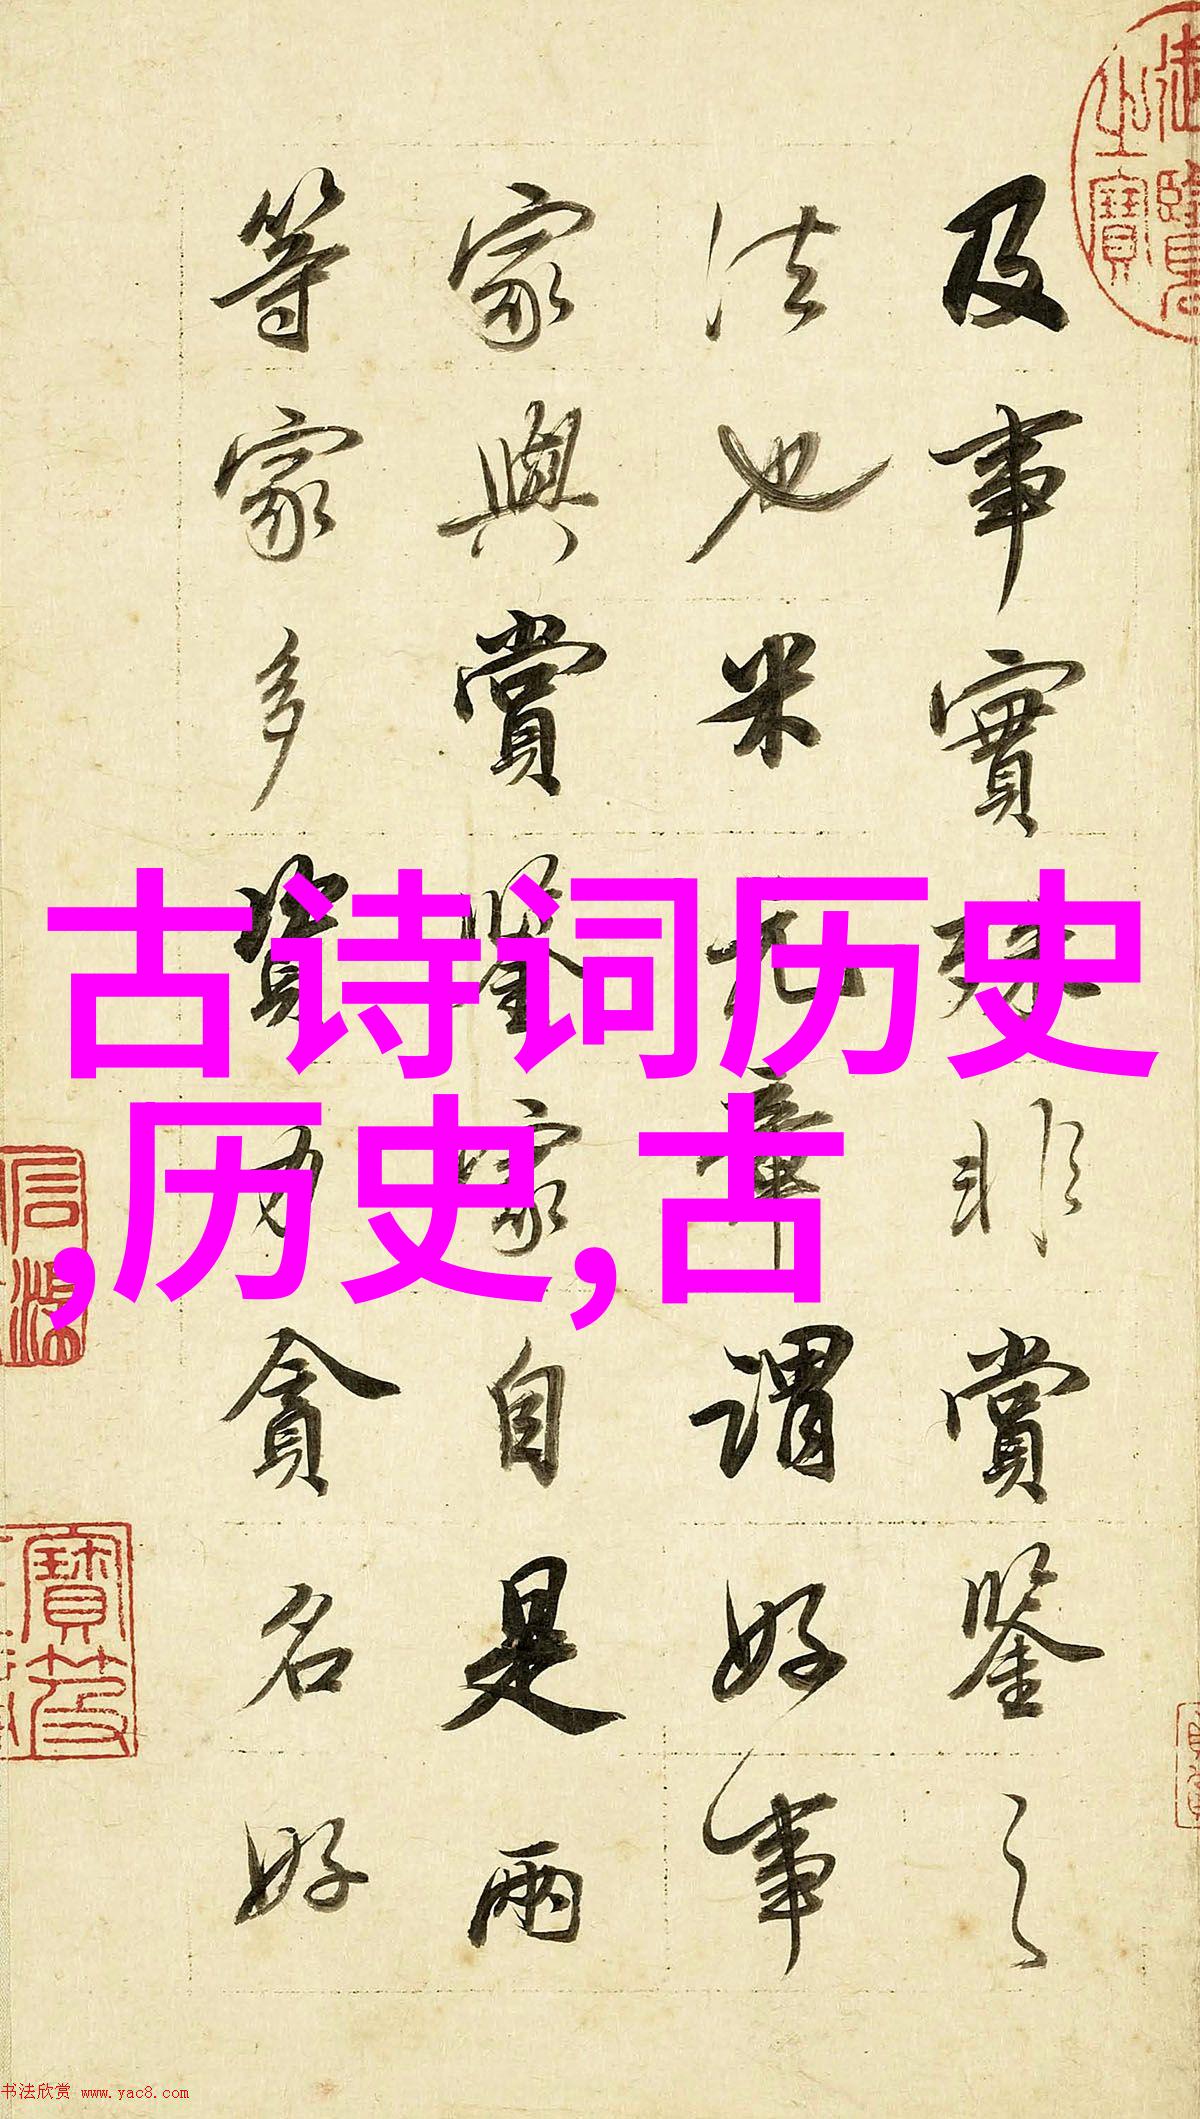 及事實殊非賞鑒之
法也米元章謂好事
家與賞鑒家自是兩
等家多資力貪名好
古诗词历史
,历史,古
御覽之寶
书法欣赏 www.yac8.com